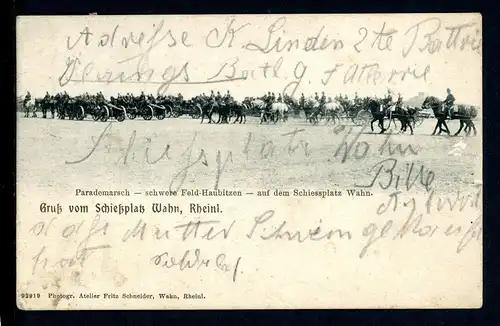 Adresse K Linden 2te Battrie
Batl. 9.
Schiesplatz Wahn
Bitte
Parademarsch — schwere Feld-Haubitzen — auf dem Schiessplatz Wahn.
Gruß vom Schießplatz Wahn, Rheinl.
Antwort
das Mutter Schwein gekauf
hat
93919 Photogr. Atelier Fritz Schneider, Wahn, Rheinl.